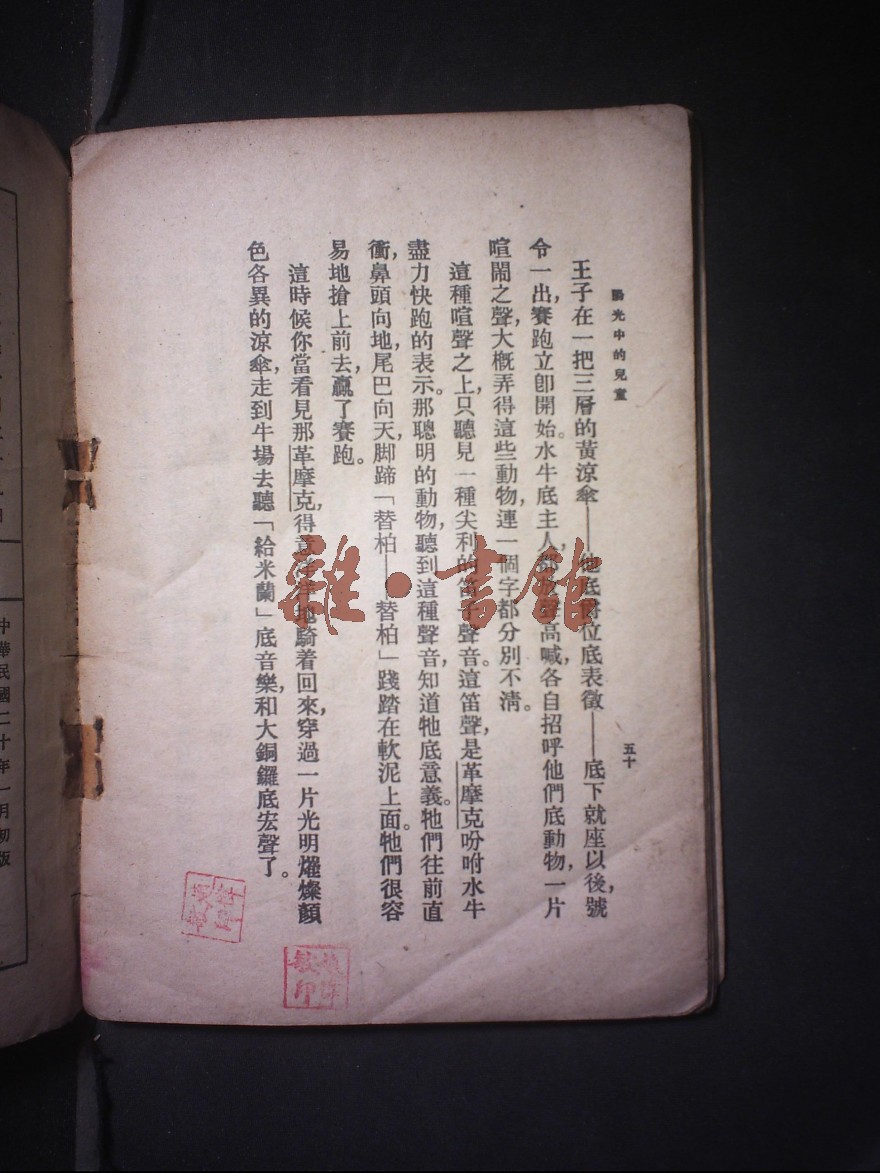 陽光中的兒童
五十
王子在一把三層的黃涼傘——他底爵位底表徵——底下就座以後,號
令一出,賽跑立卽開始。水牛底主人,都放聲高喊,各自招呼他們底動物,一片
喧鬧之聲,大槪弄得這些動物,連一個字都分別不淸。
這種喧聲之上,只聽見一種尖利的笛子聲音。這笛聲,是革摩克吩咐水牛
盡力快跑的表示。那聰明的動物,聽到這種聲音,知道牠底意義。牠們往前直
衝,鼻頭向地,尾巴向天,脚蹄「替柏——替柏」踐踏在軟泥上面。牠們很容
易地搶上前去,贏了賽跑。
這時候你當看見那革摩克,得意洋洋地騎着回來,穿過一片光明燿燦顏
色各異的涼傘,走到牛場去聽「給米蘭」底音樂,和大銅鑼底宏聲了。
雜·書館
中華民國二十年一月初版